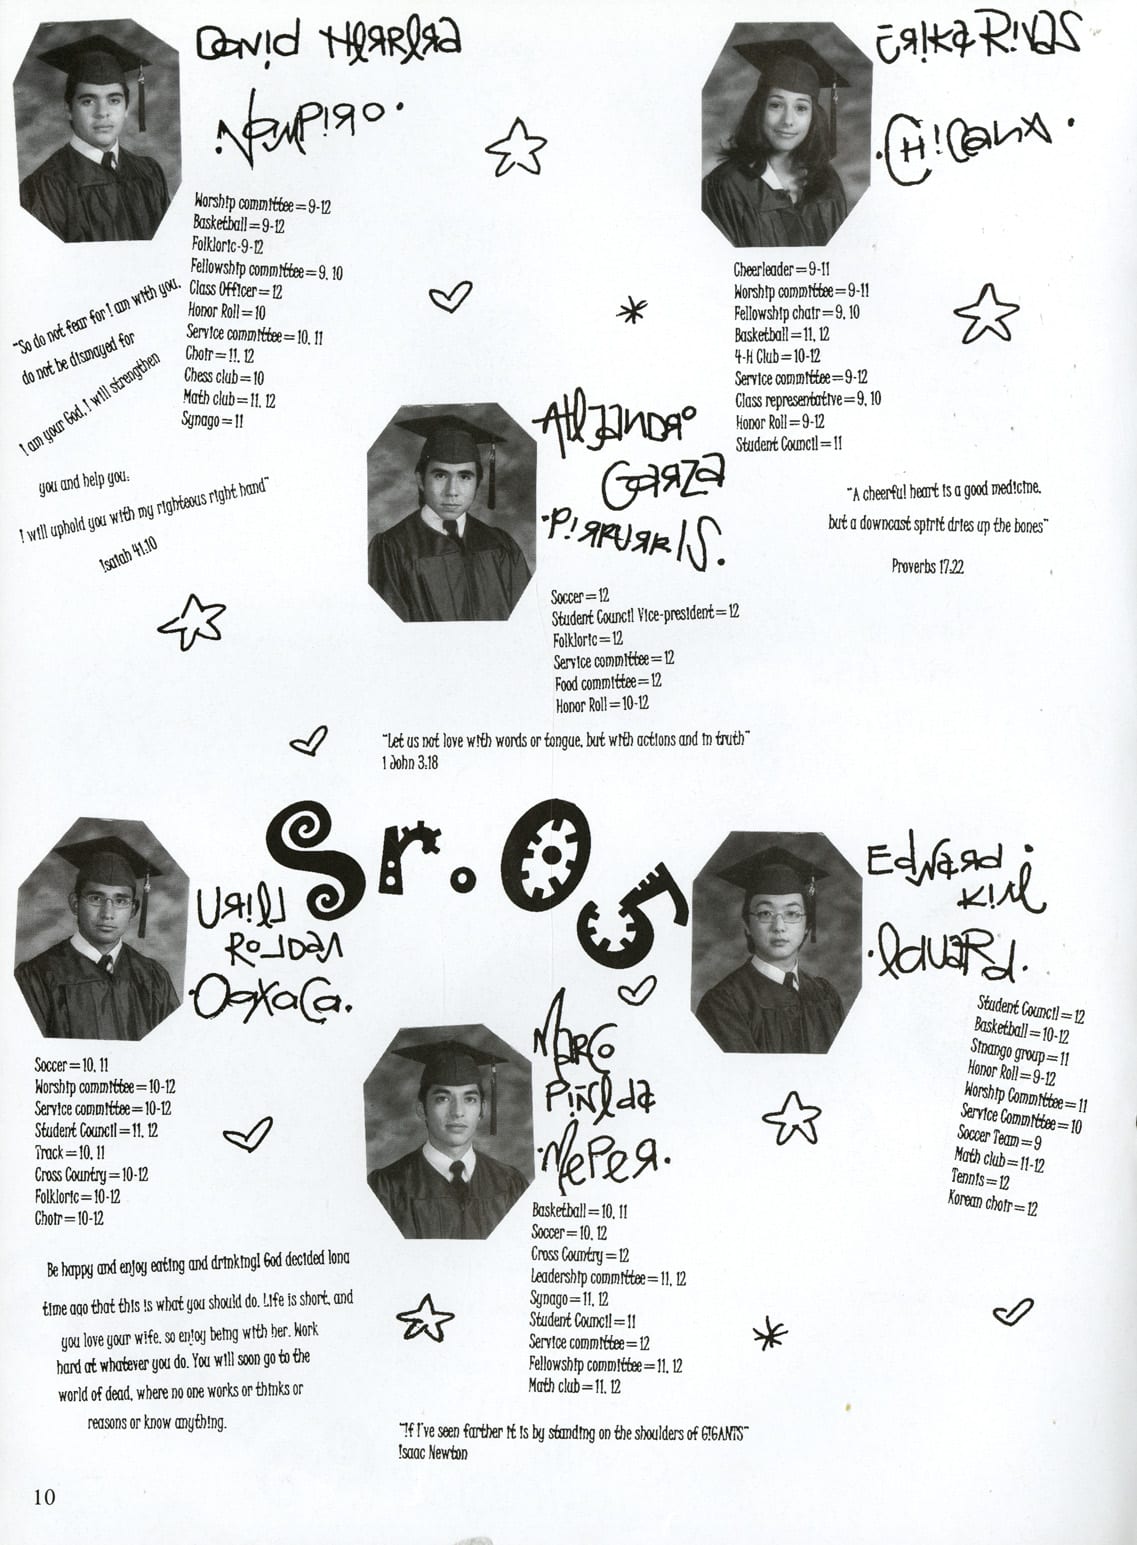 David Herrera
.Vampiro.
Worship committee=9-12
Basketball=9-12
Folkloric-9-12
Fellowship committee=9, 10
Class Officer=12
Honor Roll=10
Service committee=10, 11
Choir=11, 12
Chess club=10
Math club=11, 12
Synago=11
"So do not fear for I am with you,
do not be dismayed for
I am your God, I will strengthen
you and help you;
I will uphold you with my righteous right hand"
Isaiah 41.10
Erika Rivas
.Chicana.
Cheerleader=9-11
Worship committee=9-11
Fellowship chair=9, 10
Basketball=11, 12
4-H Club=10-12
Service committee=9-12
Class representative=9, 10
Honor Roll=9-12
Student Council=11
"A cheerful heart is a good medicine,
but a downcast spirit dries up the bones"
Proverbs 17:22
Alejandro
Garza
.Pirruris.
Soccer=12
Student Council Vice-president=12
Folkloric=12
Service committee=12
Food committee=12
Honor Roll=10-12
"Let us not love with words or tongue, but with actions and in truth"
1 John 3.18
Sr.05
Uriel
Roldan
.Oaxaca.
Soccer=10, 11
Worship committee=10-12
Service committee=10-12
Student Council=11, 12
Track=10, 11
Cross Country=10-12
Folkloric=10-12
Choir=10-12
Be happy and enjoy eating and drinking! God decided long
time ago that this is what you should do. Life is short, and
you love your wife, so enjoy being with her. Work
hard at whatever you do. You will soon go to the
world of dead, where no one works or thinks or
reasons or know anything.
Marco
Piñeda
.Meper.
Basketball=10, 11
Soccer=10, 12
Cross Country=12
Leadership committee=11, 12
Synago=11, 12
Student Council=11
Service committee=12
Fellowship committee=11, 12
Math club=11, 12
"If I've seen farther it is by standing on the shoulders of GIGANTS"
Isaac Newton
Edward
Kim
.Eduard.
Student Council=12
Basketball=10-12
Smango group=11
Honor Roll=9-12
Worship Committee=11
Service Committee=10
Soccer Team=9
Math club=11-12
Tennis=12
Korean choir=12
10